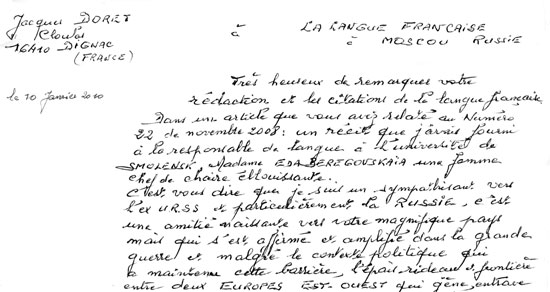 Jacques DORET
Cloulas
16410 DIGNAC
(FRANCE)
à LA LANGUE FRANCAISE
à MOSCOU RUSSIE
le 10 Janvier 2010
Très heureux de remarquer votre
rédaction et les citations de la langue française
Dans un article que vous aviez relaté au Numéro
22 de novembre 2008 : un récit que j'avais fourni
à la responsable de langue à l'université de
SMOLENSK, Madame EDA BEREGOVSKAIA une femme
chef de chaire éblouissante.
C'est vous dire que je suis un sympathisant vers
l'ex URSS et particulièrement la RUSSIE, c'est
une amitié naissante vers votre magnifique pays
mais qui s'est affirmé et amplifié dans la grande
guerre et malgré le contexte politique qui
a maintenu cette barrière, l'épais rideau et frontière
entre deux EUROPES EST-OUEST qui gêne, entrave